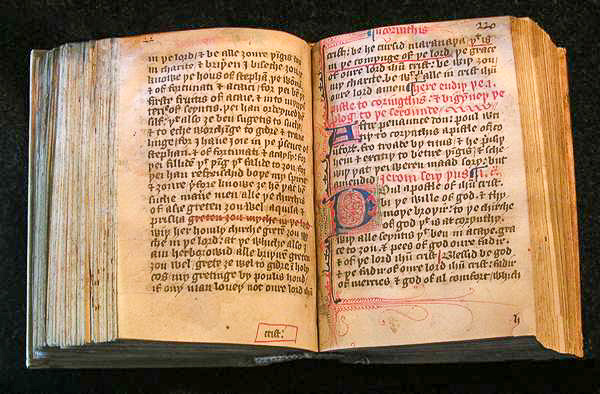 in þe lord: & be alle ȝoure þingis don
in charite. & briþeren I biseche ȝou
knowe þe hous of stephan,
& of fortunati & acaici: for þei ben
first fruitis of achaie. & into mynys
trie of seyntis, þei han ordeyned hem
silf: þat also ȝe ben sugetis to suche
& to eche worchinge to gidre & traue
linge: for I haue ioie in þe presence of
stephan. & of fortunati & acayci: for
þei filliden þat þing þat failide to ȝou: for
þei han refreischid boþe my spirit
& ȝoure þerfore knowe ȝe hem þat ben
suche maner men: alle þe chirchis
of asie greten ȝou wel. aquila &
prisca greten ȝou myche in þe lord
wiþ her homly chirche greten ȝou
in þe lord: at þe whiche also I
am herborowid: alle briþeren greten
ȝou wel. grete ȝe wel to gidre in holy
cos: my gretinge bi poulis hond
if ony man loueþ not oure lord ihū
crist:
I corinthis
220
crist: be he cursid maranatha. þe grace
of oure lord ihū crist: be wiþ ȝou
my charite. be wiþ ȝou alle in crist ihū
oure lord amen
Here endiþ þe I.
pistle to corinthis: & bigynneþ þe
prolog to þe secounde
Aftir penaunce don: poul wri
tiþ to corynthis a pistle of co
umfort. fro troade by titus: & he preisiþ
hem & excitiþ to betere þingis: & sche
wiþ þat þei weren maad sory. but
amendid Jerom seiþ þus
Poul apostle of ihū crist.
bi þe wille of god. & thy
mothe broþir. to þe chirche
of god þat is at corynthy.
wiþ alle seyntis þat ben in acaye. gra
ce to ȝou. & pees of god oure fadir.
& of þe lord ihū crist: Blessid be god
& þe fadir of oure lord ihū crist: fadir
of mercies. & god of al comfort. which